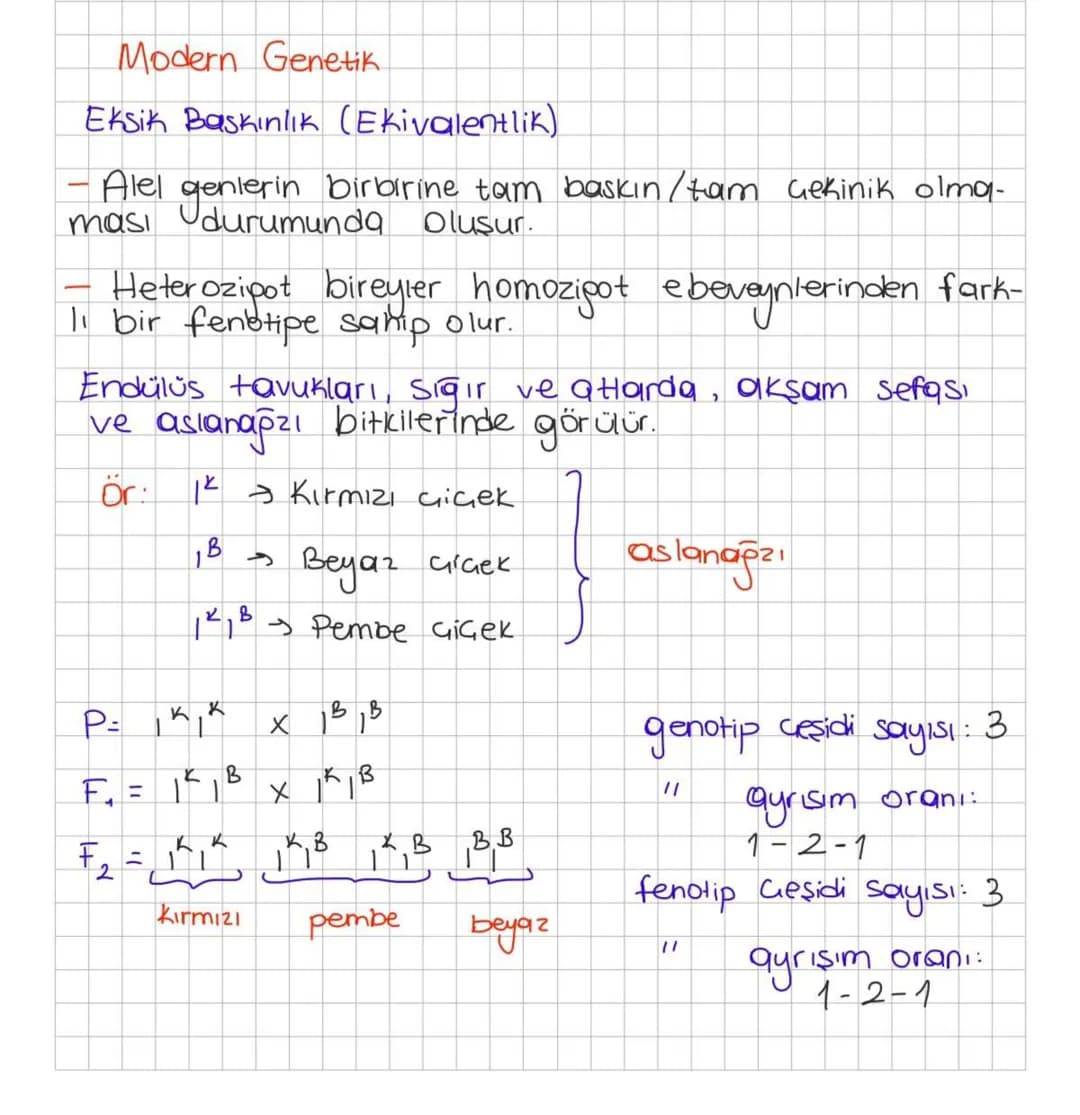 Modern Genetik
Eksik Baskınlık (Ekivalentlik)
- Alel genlerin birbirine tam baskın/tam çekinik olma-
ması durumunda oluşur.
- Heterozigot bireyler homozigot ebeveynlerinden fark-
lı bir fenotipe sahip olur.
Endülüs tavukları, sığır ve atlarda, akşam sefası
ve aslanağzı bitkilerinde görülür.
Ör: I^K → Kırmızı çiçek
I^B → Beyaz çiçek
aslanağzı
I^K I^B → Pembe çiçek
P= I^K I^K x I^B I^B
F₁ = I^K I^B x I^K I^B
F₂ = I^K I^K I^K I^B I^K I^B I^B I^B
kırmızı pembe beyaz
genotip çeşidi sayısı: 3
" ayrışım oranı:
1-2-1
fenotip çeşidi sayısı: 3
" ayrışım oranı:
1-2-1